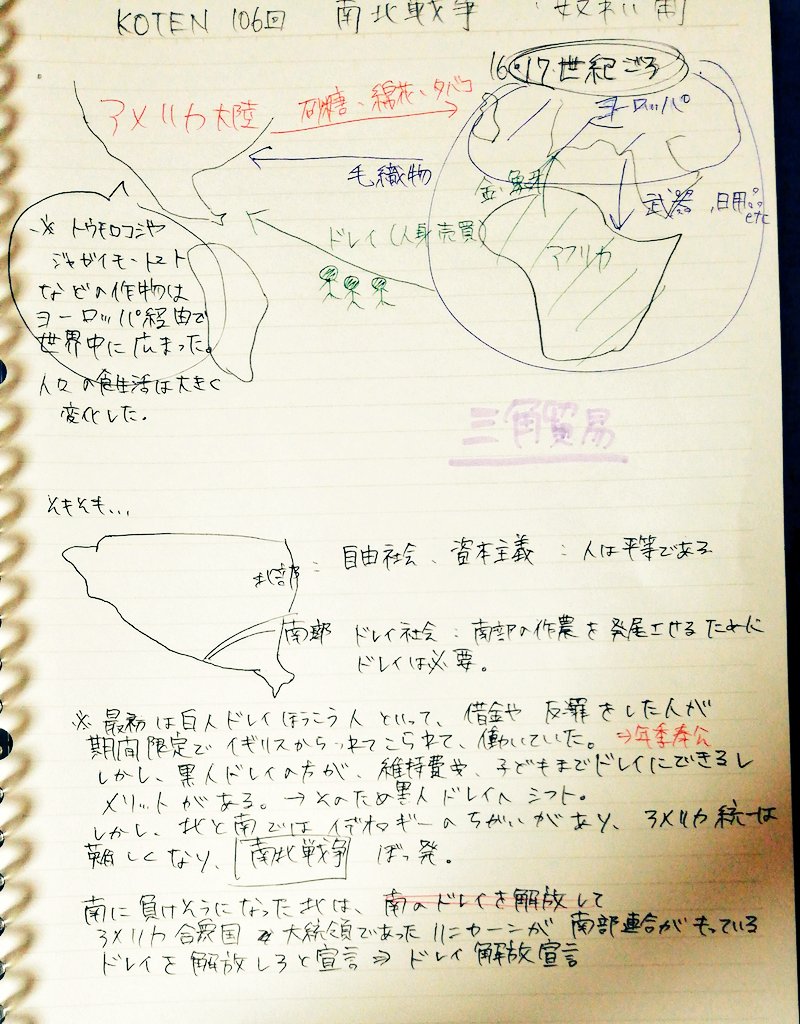 KOTEN 106回 南北戦争 奴れい制
16・17世紀ごろ
アメリカ大陸
砂糖、綿花、タバコ
ヨーロッパ
毛織物
金・象牙
武器、日用品
etc
ドレイ(人身売買)
アフリカ
※ トウモロコシや
ジャガイモ・トマト
などの作物は
ヨーロッパ経由で
世界中に広まった。
人々の食生活は大きく
変化した。
三角貿易
そもそも...
北部: 自由社会、資本主義:人は平等である
南部 ドレイ社会:南部の作農を発展させるために
ドレイは必要。
※ 最初は白人ドレイほうこう人といって、借金や 犯罪をした人が
期間限定でイギリスからつれてこられて、働いていた。⇒年季奉公
しかし、黒人ドレイの方が、維持費や、子どもまでドレイにできるし
メリットがある。→そのため黒人ドレイへシフト。
しかし、北と南ではイデオロギーのちがいがあり、アメリカ統一は
難しくなり、南北戦争 ぼっ発。
南に負けそうになった北は、南のドレイを解放して
アメリカ合衆国 大統領であったリンカーンが 南部連合がもっている
ドレイを解放しろと宣言⇒ドレイ解放宣言